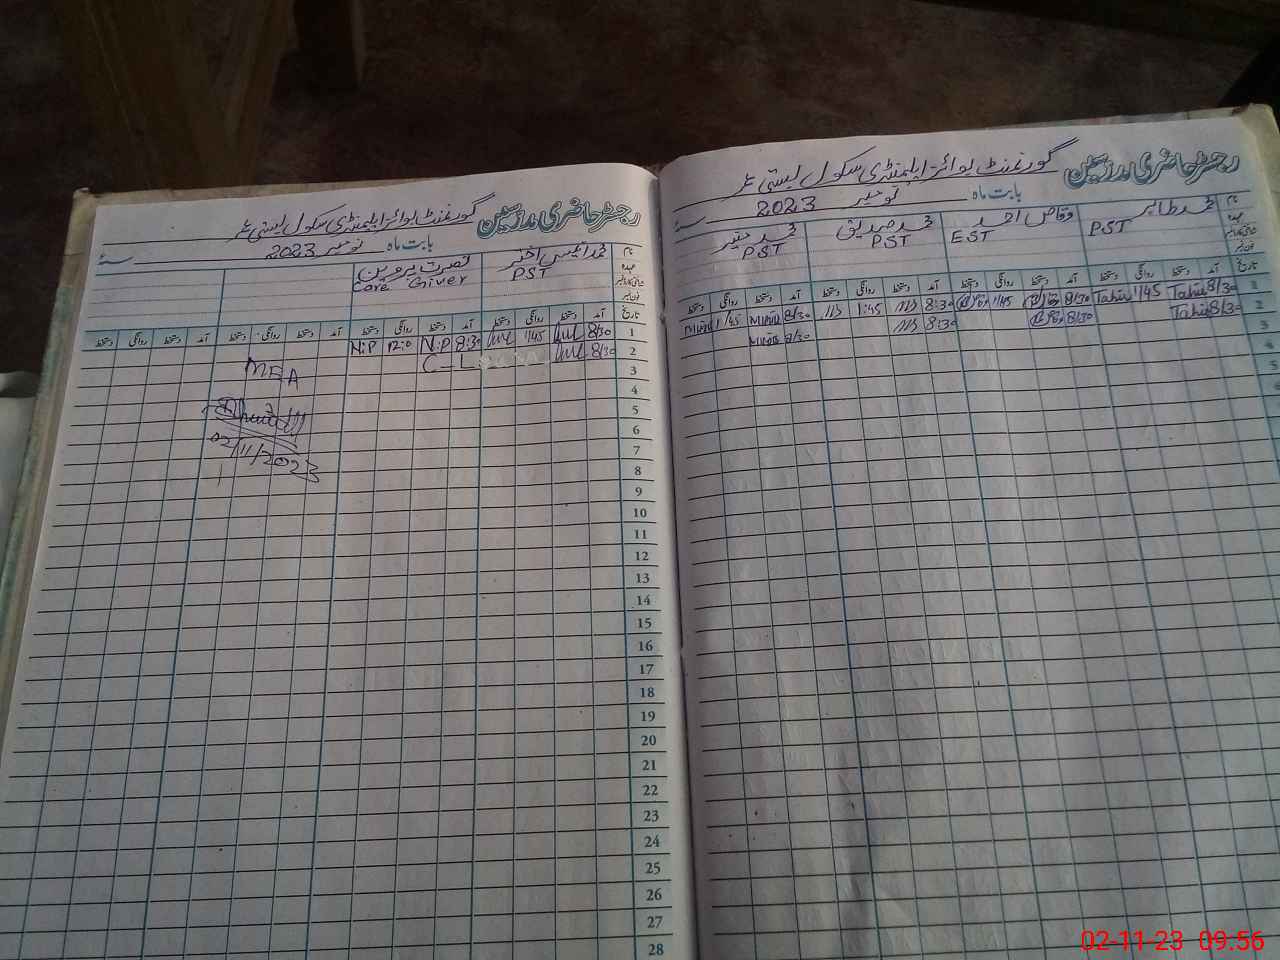 رجسٹر حاضری مدرسین گورنمنٹ بوائز ایلیمنٹری سکول بستی
بابت ماہ نومبر 2023 سنہ
نام محمد طاہر وقاص احمد محمد صدیق محمد منیر
عہدہ PST EST PST PST
تاریخ آمد دستخط روانگی دستخط آمد دستخط روانگی دستخط آمد دستخط روانگی دستخط آمد دستخط روانگی دستخط
1 8/30 Tahir 1/45 Tahir 8/30 1/45 8:30 1:45 8/30 Munir 1/45 Munir
2 8/30 Tahir 8/30 8:30 8/30 Munir
3
4
5
رجسٹر حاضری مدرسین گورنمنٹ بوائز ایلیمنٹری سکول بستی
بابت ماہ نومبر 2023 سنہ
نام محمد انیس اختر نصرت پروین
عہدہ PST Care Giver
تاریخ آمد دستخط روانگی دستخط آمد دستخط روانگی دستخط آمد دستخط روانگی دستخط آمد دستخط روانگی دستخط
1 8/30 1/45 8:30 N:P 12:0 N:P
2 8/30 C-L
3
MEA
4
5
6
7
02/11/2023
8
9
10
11
12
13
14
15
16
17
18
19
20
21
22
23
24
25
26
27
28
02-11-23 09:56